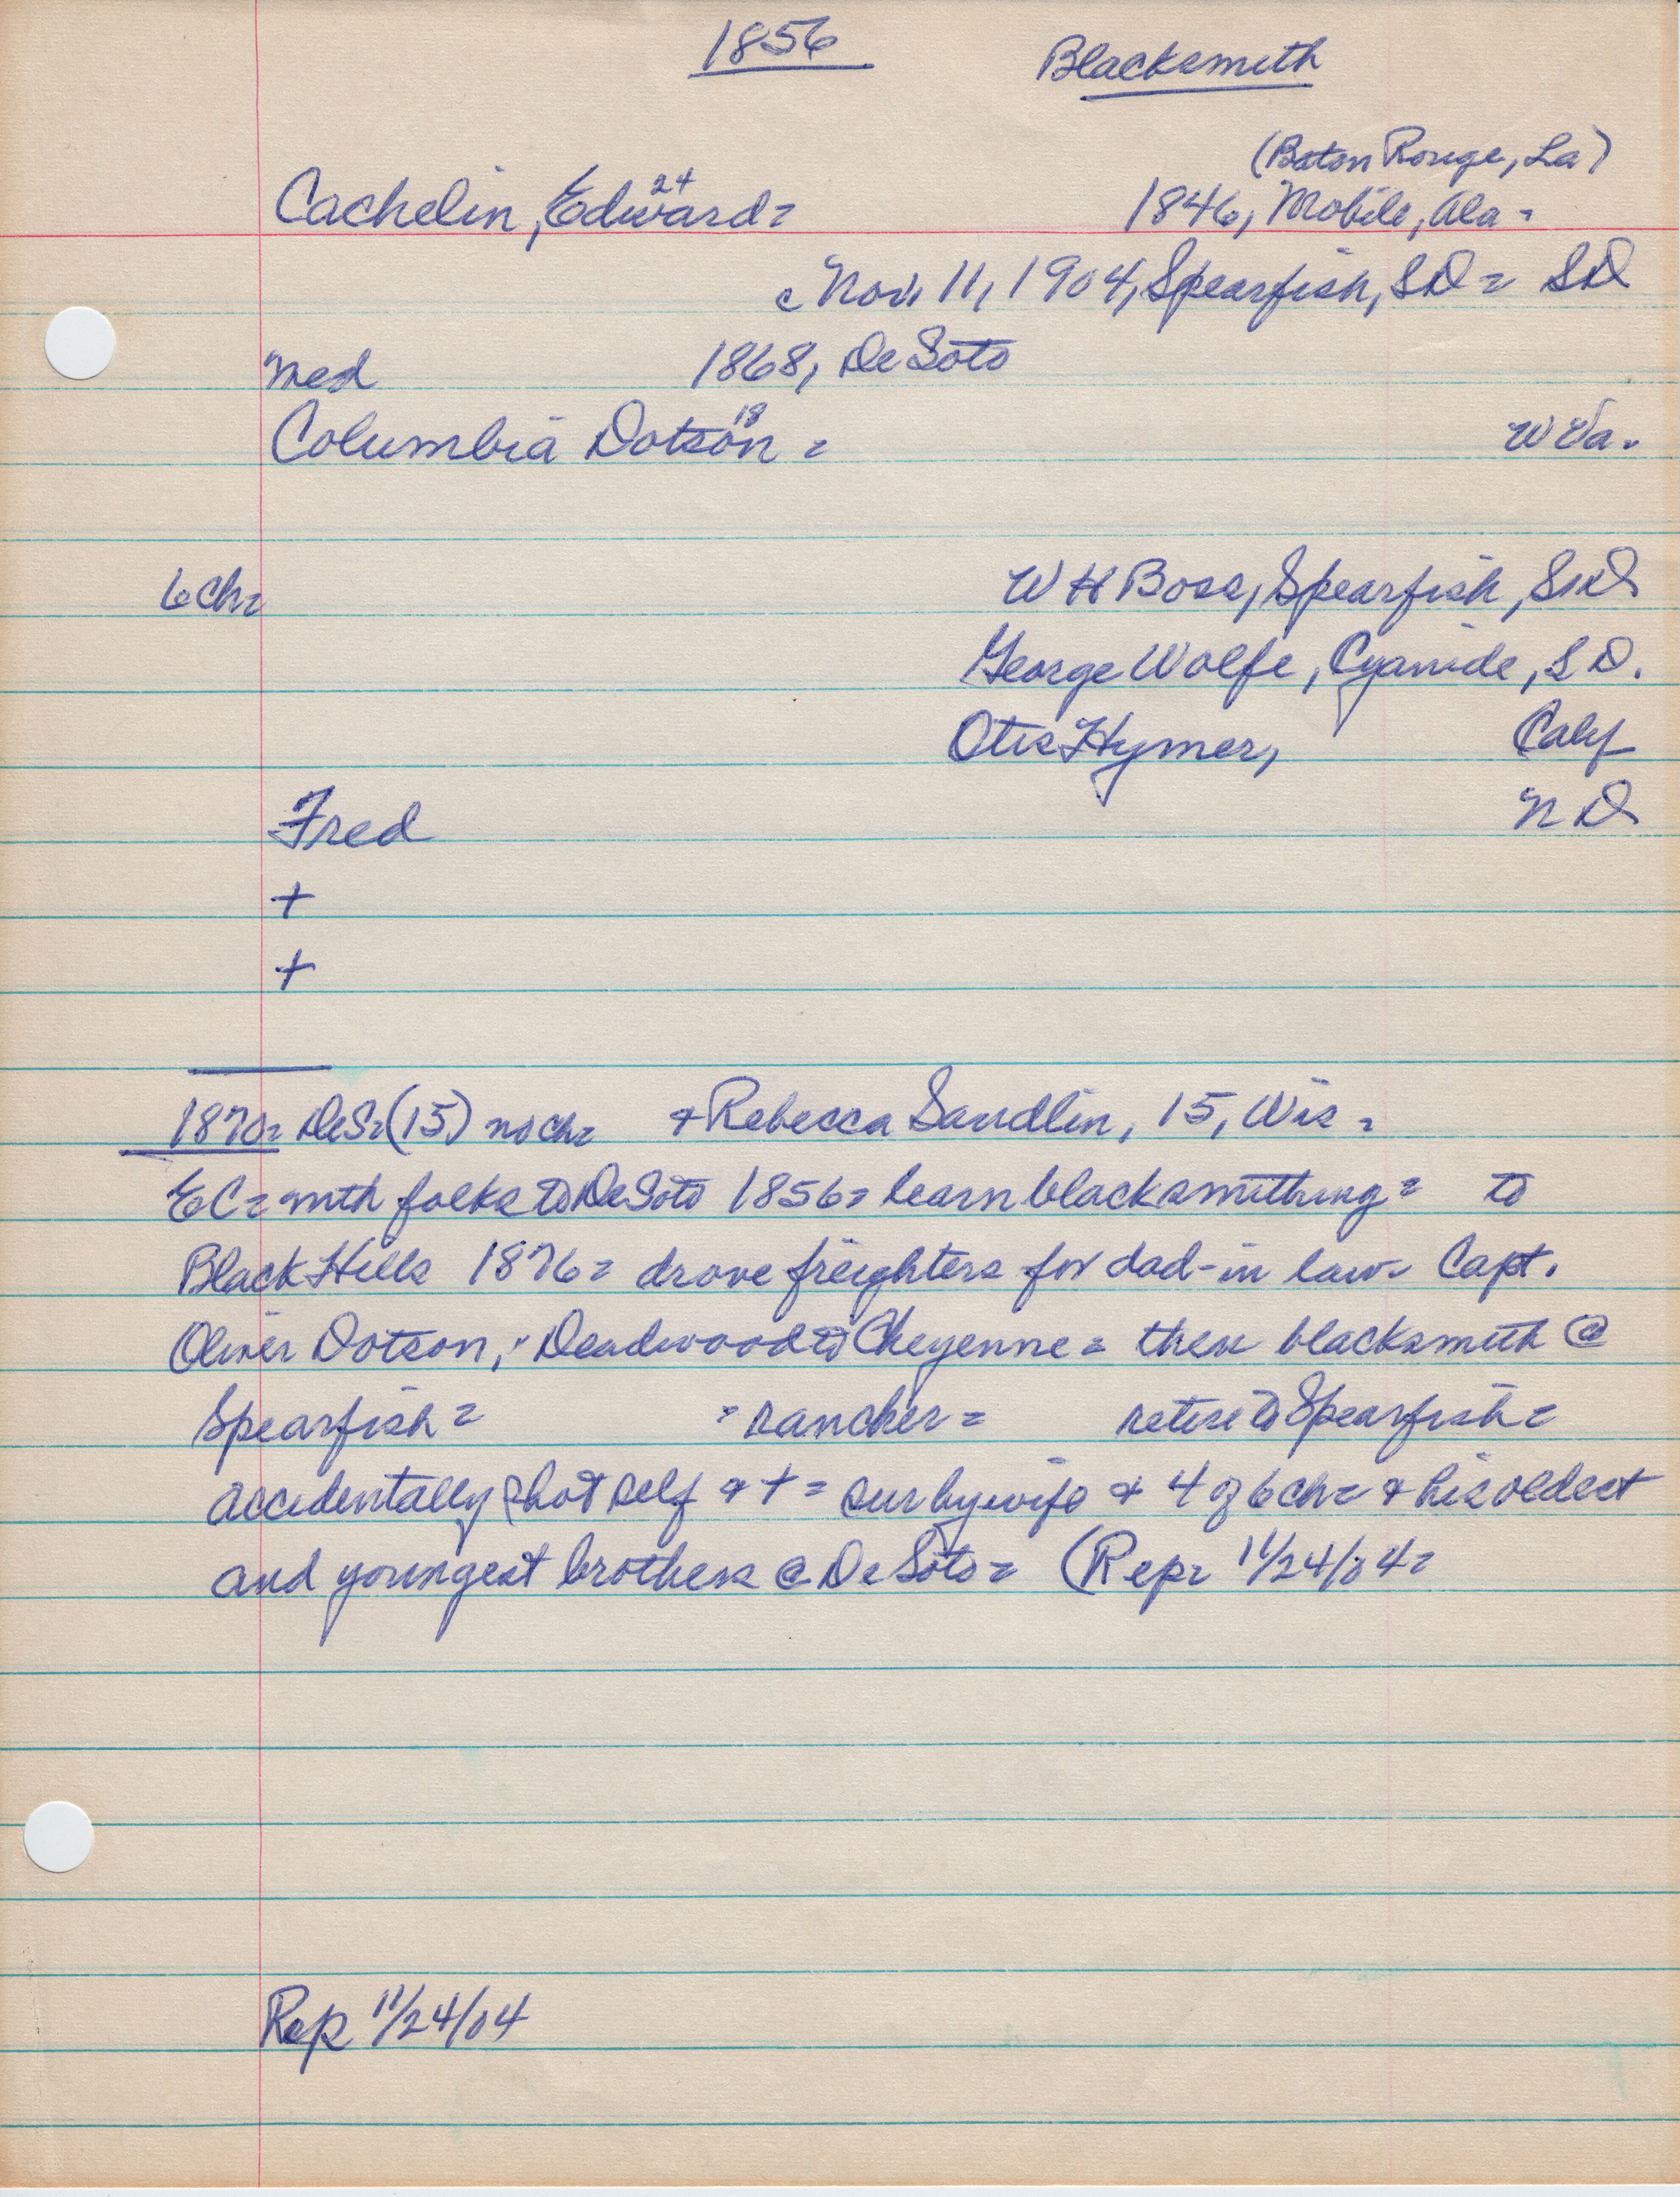 1856 Blacksmith
(Baton Rouge, La)
24
Cachelin, Edward = 1846, Mobile, Ala =
c Nov. 11, 1904, Spearfish, SD = SD
med 1868, De Soto
18
Columbia Dotson = W Va.
6 ch = W H Boss, Spearfish, SD
George Wolfe, Cyanide, S D.
Otis Hymer, Calif
Fred N D
+
+
1870 = DeS = (15) no ch = + Rebecca Sandlin, 15, Wis =
EC = with folks to DeSoto 1856 = learn blacksmithing = to
Black Hills 1876 = drove freighters for dad-in law = Capt.
Oliver Dotson, Deadwood to Cheyenne = then blacksmith @
Spearfish = = rancher = retire to Spearfish =
accidentally shot self + + = sur by wife + 4 of 6 ch = + his oldest
and youngest brothers @ De Soto = (Rep = 11/24/04 =
Rep 11/24/04